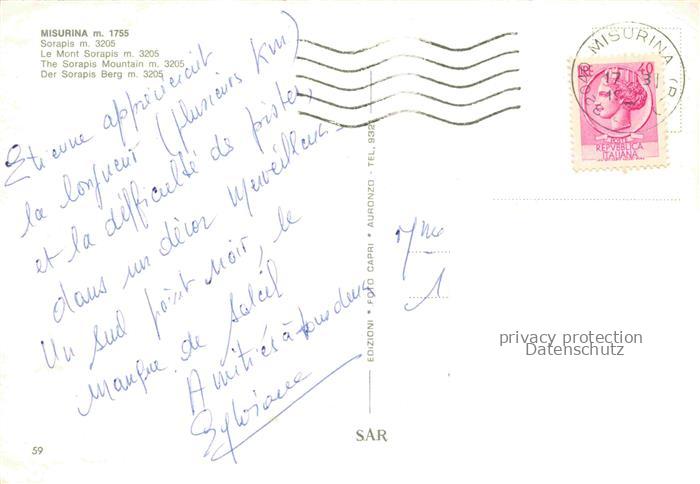 MISURINA m. 1755
Sorapis m. 3205
Le Mont Sorapis m. 3205
The Sorapis Mountain m. 3205
Der Sorapis Berg m. 3205
Etienne apprécierait
la longueur (plusieurs km)
et la difficulté de pistes,
dans un décor merveilleux.
Un seul point noir, le
manque de soleil
Amitiés à tous deux
Sylviane
59
EDIZIONI * FOTO CAPRI * AURONZO - TEL. 932
SAR
MISURINA
17
40
POSTE
REPVBBLICA
ITALIANA
Mme
privacy protection
Datenschutz